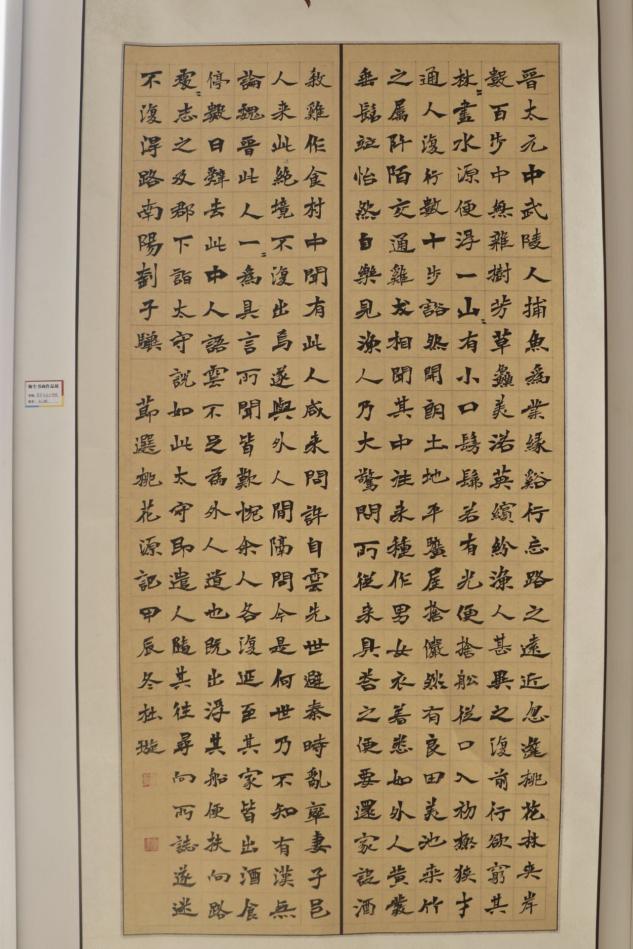 晋太元中武陵人捕魚為業緣谿行忘路之遠近忽逢桃花林夾岸
數百步中無雜樹芳草鱻美落英繽紛漁人甚異之復前行欲窮其
林盡水源便得一山有小口髣髴若有光便捨船從口入初極狹才
通人復行數十步豁然開朗土地平曠屋捨儼然有良田美池桑竹
之屬阡陌交通雞犬相聞其中往来種作男女衣著悉如外人黄髮
垂髫竝怡然自樂見漁人乃大驚問所從来具答之便要還家設酒
殺雞作食村中聞有此人咸来問訊自雲先世避秦時亂率妻子邑
人来此絶境不復出焉遂與外人間隔問今是何世乃不知有漢無
論魏晋此人一為具言所聞皆歎惋余人各復延至其家皆出酒食
停數日辭去此中人語雲不足為外人道也既出得其船便扶向路
處志之及郡下詣太守說如此太守即遣人隨其往尋向所誌遂迷
不復得路南陽劉子驥
節選桃花源記甲辰冬杜璇